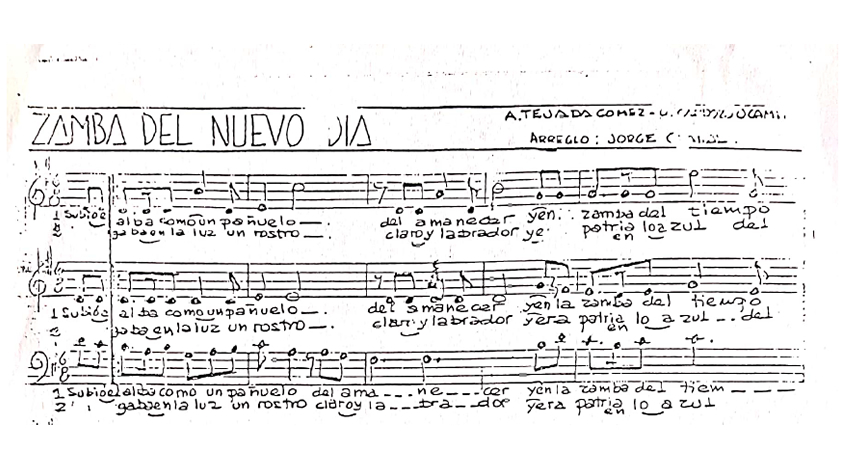 ZAMBA DEL NUEVO DIA
A. TEJADA GOMEZ -
ARREGLO: JORGE
1 Subioel alba como un pañuelo —. del amanecer yen zamba del tiempo
2 gabaenla luz un rostro —. claro y labrador ye patria en lo azul del
1 Subioel alba como un pañuelo —. del amanecer yen la zamba del tiempo
2 gabaenla luz un rostro —. claro y labrador yera patria en lo azul __ del
1 Subioel alba como un pañuelo del ama __ ne __ cer yen la zamba del tiem ___
2 gabaenla luz un rostro claroy la __ bra __ dor yera patria en lo azul